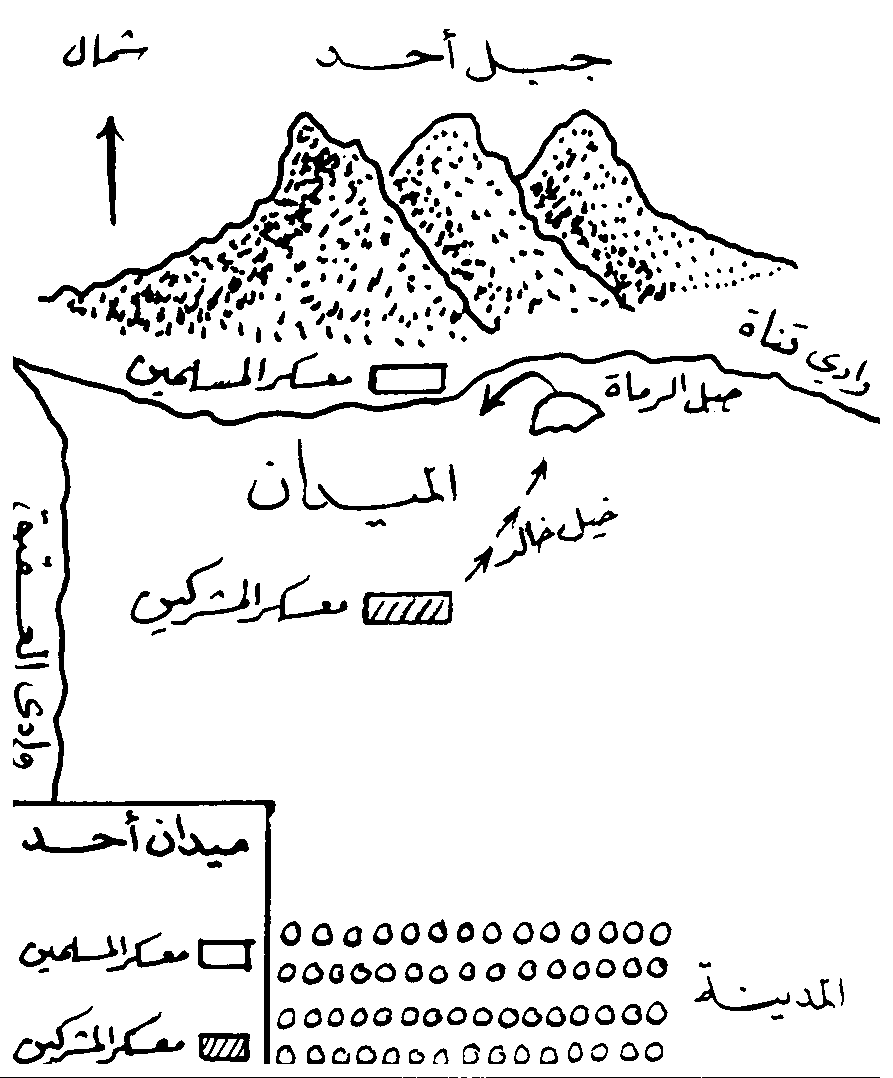 شمال
جبل أحد
وادي قناة
معسكر المسلمين
جبل الرماة
الميدان
خيل خالد
معسكر المشركين
وادي العقيق
ميدان أحد
معسكر المسلمين
معسكر المشركين
المدينة